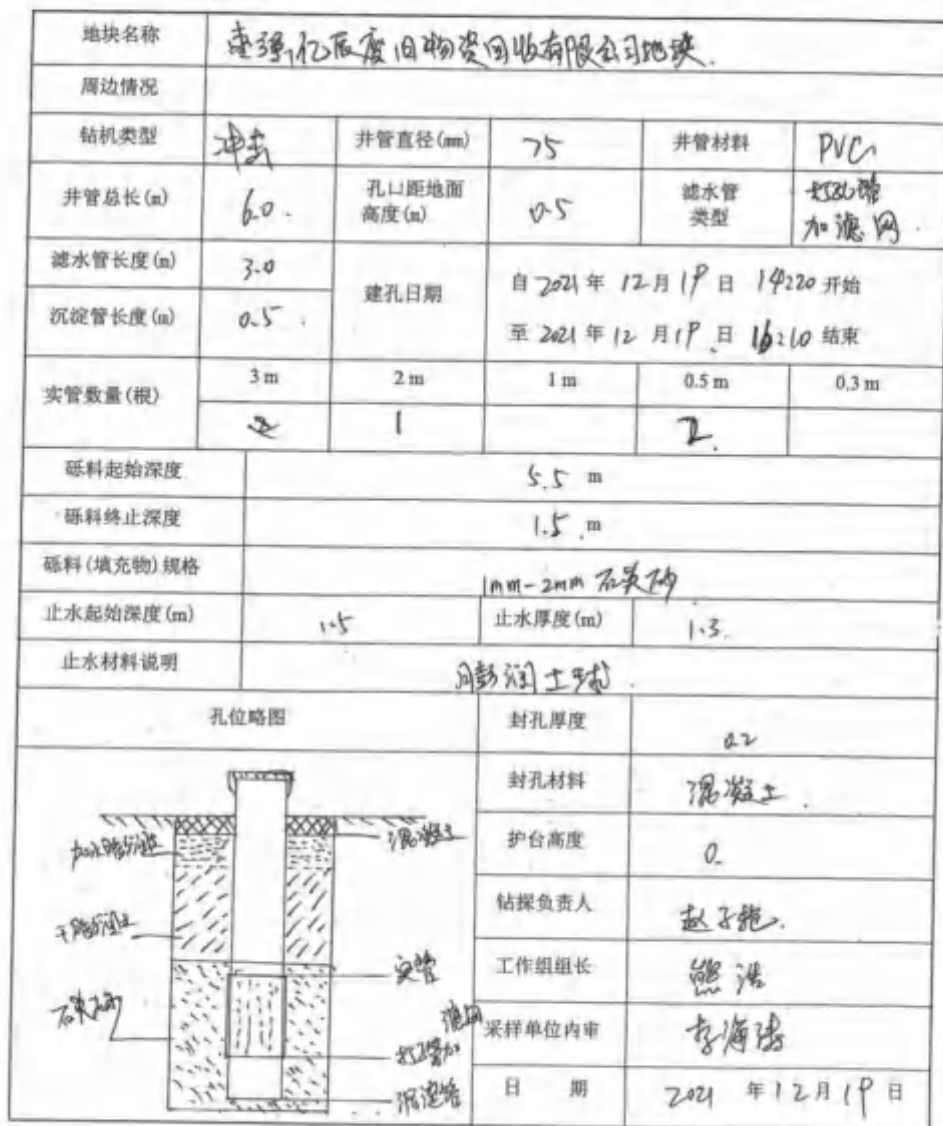 地块名称 枣强亿辰废旧物资回收有限公司地块.
周边情况
钻机类型 冲击 井管直径(mm) 75 井管材料 PVC
井管总长(m) 6.0. 孔口距地面高度(m) 0.5 滤水管类型 打孔管加滤网.
滤水管长度(m) 3.0 建孔日期 自 2021 年 12 月 19 日 14:20 开始
沉淀管长度(m) 0.5. 至 2021 年 12 月 19 日 16:10 结束
实管数量(根) 3 m 2 m 1 m 0.5 m 0.3 m
1 2.
砾料起始深度 5.5 m
砾料终止深度 1.5 m
砾料(填充物)规格 1mm-2mm 石英砂
止水起始深度(m) 1.5 止水厚度(m) 1.3.
止水材料说明 膨润土球.
孔位略图 封孔厚度 0.2
封孔材料 混凝土.
护台高度 0.
钻探负责人
工作组组长 熊浩
采样单位内审 李海涛
日 期 2021 年 12 月 19 日
混凝土
加水膨润土
干膨润土
实管
石英砂
滤网
打孔管加
沉淀管